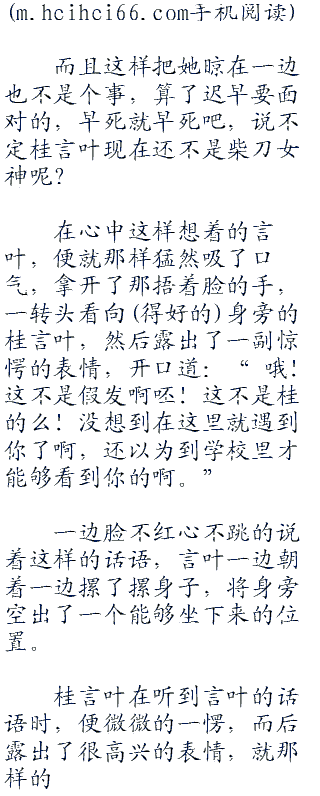 (m.hcihci66.com手机阅读)
而且这样把她晾在一边
也不是个事，算了迟早要面
对的，早死就早死吧，说不
定桂言叶现在还不是柴刀女
神呢？
在心中这样想着的言
叶，便就那样猛然吸了口
气，拿开了那捂着脸的手，
一转头看向(得好的)身旁的
桂言叶，然后露出了一副惊
愕的表情，开口道：“ 哦！
这不是假发啊呸！这不是桂
的么！没想到在这里就遇到
你了啊，还以为到学校里才
能够看到你的啊。”
一边脸不红心不跳的说
着这样的话语，言叶一边朝
着一边摞了摞身子，将身旁
空出了一个能够坐下来的位
置。
桂言叶在听到言叶的话
语时，便微微的一愣，而后
露出了很高兴的表情，就那
样的